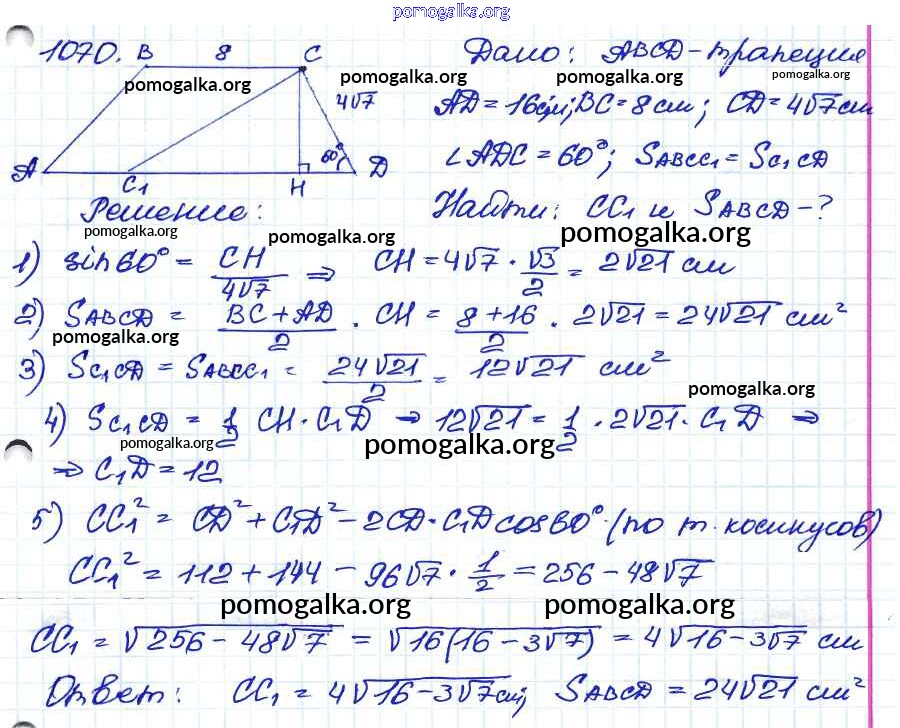 pomogalka.org
1070. B 8 C Дано: ABCD - трапеция
pomogalka.org pomogalka.org pomogalka.org
4√7 AD = 16 см; BC = 8 см; CD = 4√7 см
pomogalka.org
60° ∠ADC = 60°; SABCC₁ = SC₁CD
A C₁ H D
Решение: Найти: CC₁ и SABCD - ?
pomogalka.org pomogalka.org pomogalka.org
1) sin60° = CH/4√7 ⇒ CH = 4√7 · √3/2 = 2√21 см
2) SABCD = BC + AD/2 · CH = 8+16/2 · 2√21 = 24√21 см²
pomogalka.org
3) SC₁CD = SABCC₁ = 24√21/2 = 12√21 см²
pomogalka.org
4) SC₁CD = 1/2 CH · C₁D → 12√21 = 1/2 · 2√21 · C₁D ⇒
pomogalka.org pomogalka.org
⇒ C₁D = 12
5) CC₁² = CD² + C₁D² - 2CD · C₁D cos60° (по т. косинусов)
CC₁² = 112 + 144 - 96√7 · 1/2 = 256 - 48√7
pomogalka.org pomogalka.org
CC₁ = √256 - 48√7 = √16(16 - 3√7) = 4√16 - 3√7 см
Ответ: CC₁ = 4√16 - 3√7 см; SABCD = 24√21 см²